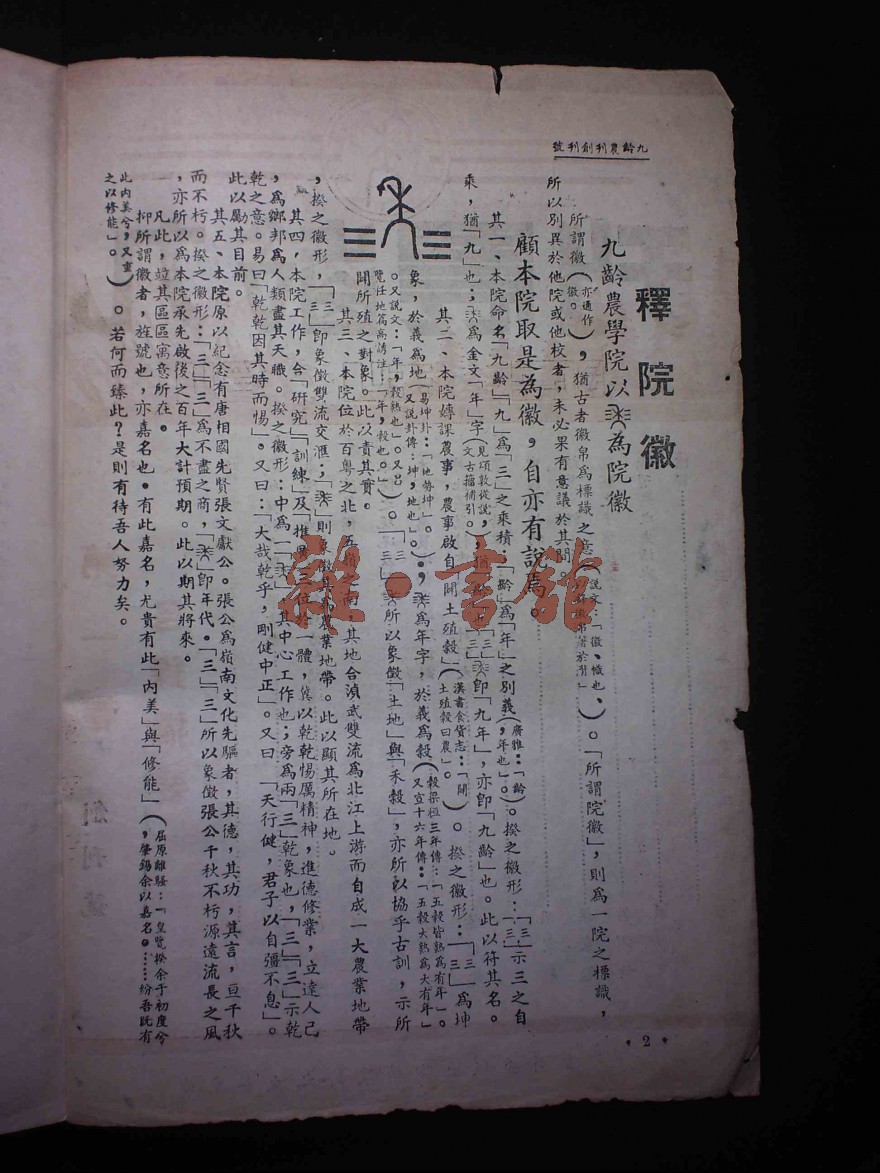 九齡農刊創刊號
釋院徽
九齡農學院以 為院徽
所謂徽(亦通作徽。),猶古者徽帛為標識之意(說文:「徽、幟也、)。「所謂院徽」,則為一院之標識,
所以別異於他院或他校者,未必果有意議於其間。
顧本院取是為徽,自亦有說焉
其一、本院命名「九齡」「九」為「三」之乘積:「齡」為「年」之別義(廣雅:「齡。年也」。)。揆之徽形:「三」「三」示三之自
乘,猶「九」也; 為金文「年」字(見頌敦從說,文古籀補引。),猶 「三」「三」 即「九年」,亦即「九齡」也。此以符其名。
其二、本院專課農事,農事啟自「闢土殖穀」(漢書食貨志:「闢土殖穀曰農」。)。揆之徽形:「三」為坤
象,於義為地(易坤卦:「地勢坤」。又說卦傳:坤,地也」。); 為年字,於義為穀(穀梁桓三年傳:「五穀皆熟為有年」。又宣十六年傳:「五穀大熟為大有年」
。又說文:「年,穀熟也」。又呂覽任地篇高誘注:「年,穀也。」)。「三」 所以象徵「土地」與「禾穀」,亦所以協乎古訓,示所
闢所殖之對象。此以責其實。
其三、本院位於百粵之北,五嶺之南,其地合湞武雙流為北江上游而自成一大農業地帶
,揆之徽形,「三」即象徵雙流交滙; 則象徵其為農業地帶。此以顯其所在地。
其四、本院工作,合「研究」「訓練」及「推廣」三位於一體,冀以乾乾惕厲精神,進德修業,立達人己
,為鄉邦為人類盡其天職。揆之徽形:中為「 」,其中心工作也;旁為兩「三」乾象也,「三」「三」示乾
乾之意。易曰「乾乾因其時而惕」。又曰:「大哉乾乎,剛健中正」。又曰「天行健,君子以自彊不息」。
此以勵其目前。
其五、本院原以紀念有唐相國先賢張文獻公。張公為嶺南文化先驅者,其德,其功,其言,亘千秋
而不朽。揆之徽形:「三」「三」為不盡之商,「 」即年代。「三」「三」所以象徵張公千秋不朽源遠流長之風
,亦所以為本院承先啟後之百年大計預期。此以期其將來。
凡此,竝其區區寓意所在。
抑所謂徽者,旌號也,亦嘉名也。有此嘉名,尤貴有此「內美」與「修能」(屈原離騷:「皇覽揆余于初度兮,肇錫余以嘉名。……紛吾既有
此內美兮,又重之以修能」。)。若何而臻此?是則有待吾人努力矣。
•2•
雜•書館